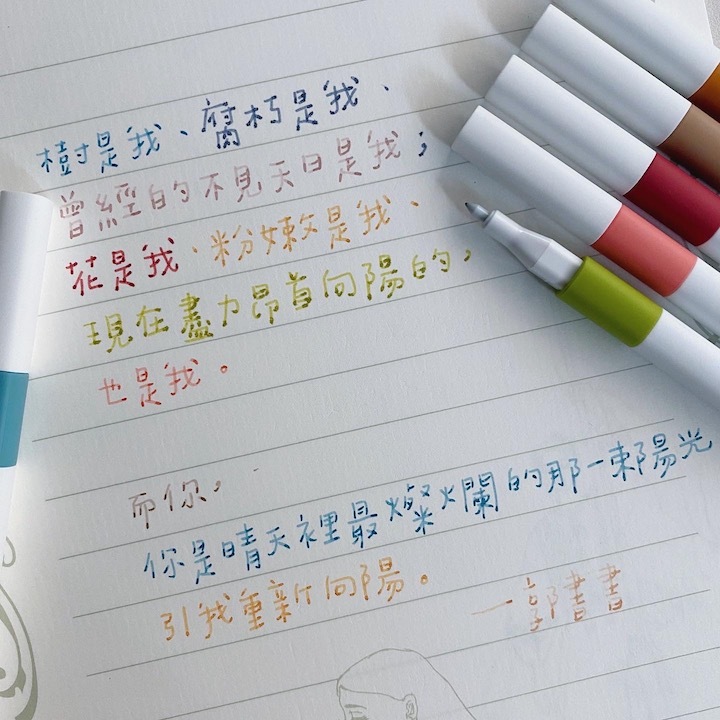 樹是我、腐朽是我、
曾經的不見天日是我；
花是我、粉嫩是我、
現在盡力昂首向陽的，
也是我。
而你，
你是晴天裡最燦爛的那一束陽光
引我重新向陽。
—郭書書